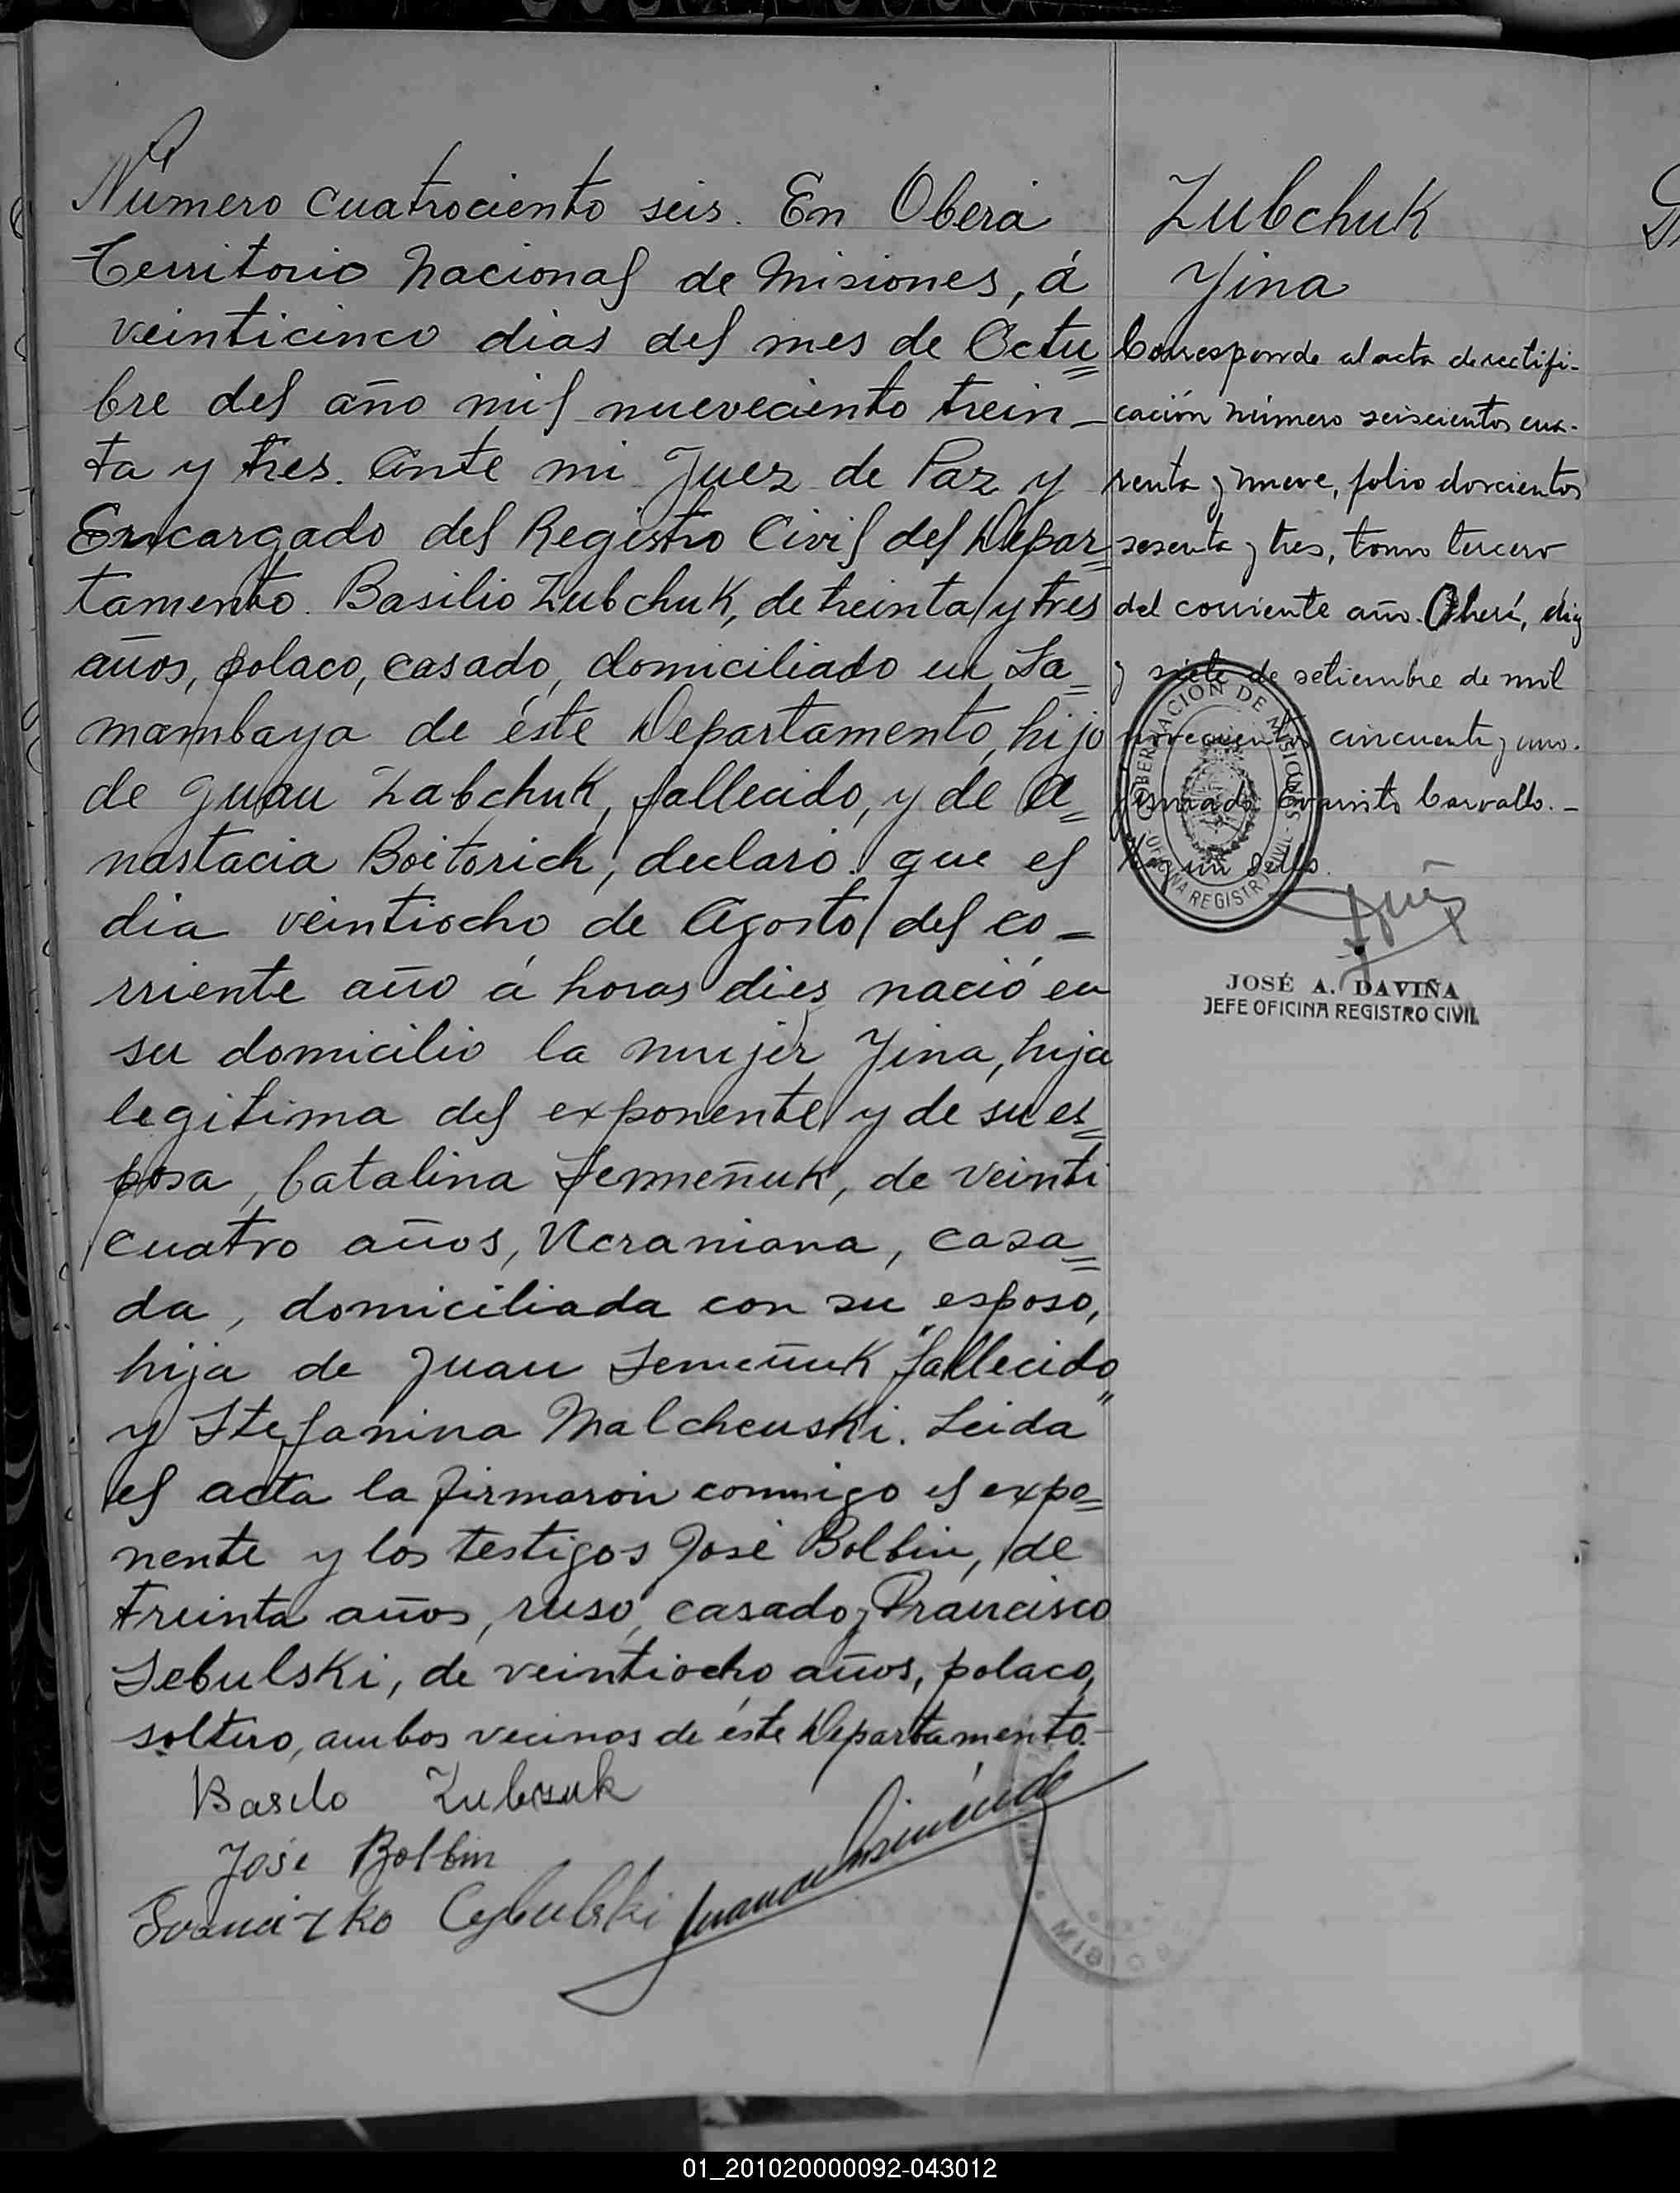 Número cuatrociento seis. En Oberá
Territorio Nacional de Misiones, á
veinticinco dias del mes de Octu=
bre del año mil nueveciento trein-
ta y tres. Ante mi Juez de Paz y
Encargado del Registro Civil del Depar=
tamento. Basilio Zubchuk, de treinta y tres
años, polaco, casado, domiciliado en Sa=
mambaya de éste Departamento, hijo
de Juan Zabchuk, fallecido, y de A=
nastacia Boitorich, declaró: que el
dia veintiocho de Agosto del co=
rriente año á horas dies nació en
su domicilio la mujer Yina, hija
legitima del exponente y de su es=
posa, Catalina Semeñuk, de veinti
cuatro años, Ucraniana, casa=
da, domiciliada con su esposo,
hija de Juan Semeñuk "fallecido"
y Stefanina Malcheuski. Leida
el acta la firmaron conmigo el expo=
nente y los testigos José Bolbin, de
treinta años, ruso, casado y Francisco
Sebulski, de veintiocho años, polaco,
soltero, ambos vecinos de éste Departamento.-
Basilo Zubczuk
José Bolbin
Cybulski
Zubchuk
Yina
Corresponde al acta de rectifi-
cación número seiscientos cua-
renta y nueve, folio doscientos
sesenta y tres, tomo tercero
del corriente año. Oberá, diez
y siete de setiembre de mil
novecientos cincuenta y uno.
firmado: Evaristo Carvallo.-
Hay un sello.
GOBERNACIÓN DE MISIONES
OFICINA REGISTRO CIVIL
JOSÉ A. DAVIÑA
JEFE OFICINA REGISTRO CIVIL
01_201020000092-043012